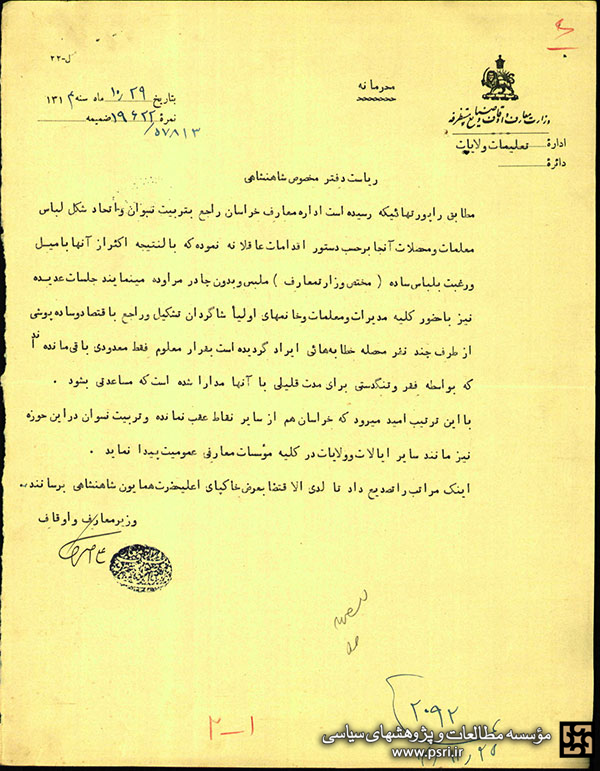 ل-۲۲
محرمانه
وزارت معارف و اوقاف و صنایع مستظرفه
اداره تعلیمات ولایات
دائره
بتاریخ ۱۰/۲۹ ماه سنه ۱۳۱۴
نمره ۱۹۶۲۲ ضمیمه
۵۷۸۱۳
ریاست دفتر مخصوص شاهنشاهی
مطابق راپورتهائیکه رسیده است اداره معارف خراسان راجع بتربیت نسوان و اتحاد شکل لباس
معلمات و محصلات آنجا برحسب دستور اقدامات عاقلانه نموده که بالنتیجه اکثر از آنها با میل
و رغبت بلباس ساده ( مختص وزارتمعارف ) ملبس و بدون چادر مراوده مینمایند جلسات عدیده
نیز با حضور کلیه مدیرات و معلمات و خانمهای اولیأ شاگردان تشکیل و راجع باقتصاد و ساده پوشی
از طرف چند نفر محصله خطابه‌هائی ایراد گردیده است بقرار معلوم فقط معدودی باقی مانده
که بواسطه فقر و تنگدستی برای مدت قلیلی با آنها مدارا شده است که مساعدتی بشود .
با این ترتیب امید میرود که خراسان هم از سایر نقاط عقب نمانده و تربیت نسوان در این حوزه
نیز مانند سایر ایالات و ولایات در کلیه مؤسسات معارفی عمومیت پیدا نماید .
اینک مراتب را تصدیع داد تا لدی الاقتضا بعرض خاکپای اعلیحضرت همایون شاهنشاهی برسانند .
وزیر معارف و اوقاف
۲۰۹۲
۲-۱
مؤسسه مطالعات و پژوهشهای سیاسی
www.psri.ir